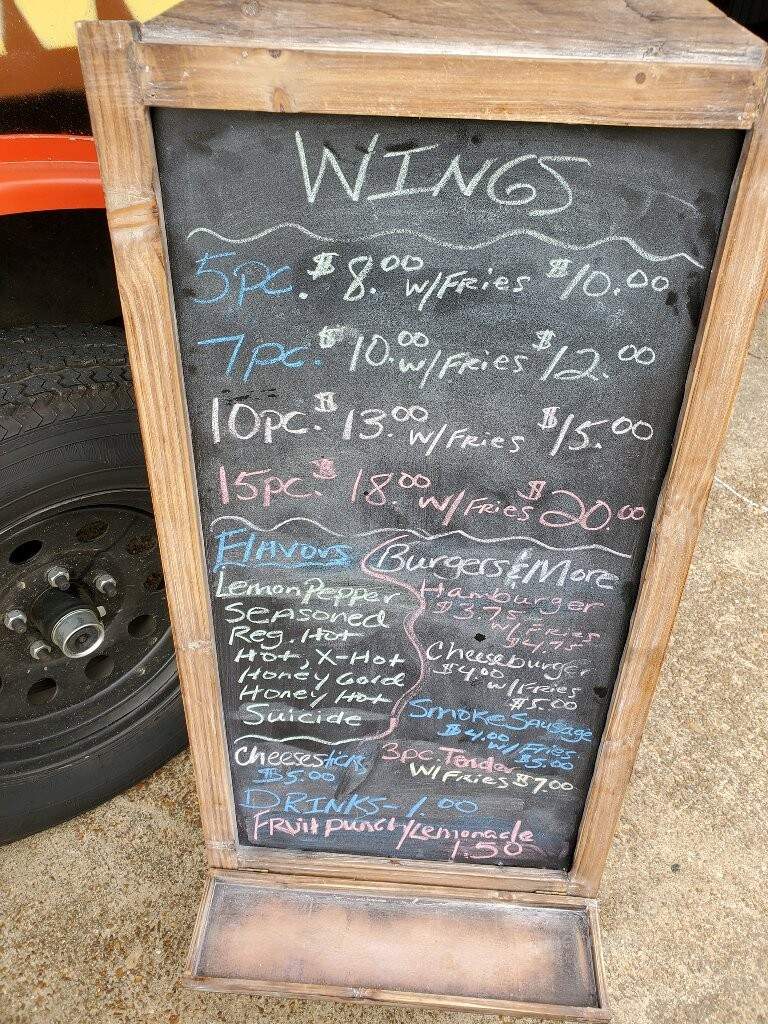 WINGS
5pc. $8.00 w/Fries $10.00
7pc. $10.00 w/Fries $12.00
10pc. $13.00 w/Fries $15.00
15pc. $18.00 w/Fries $20.00
Flavors
Lemon Pepper
Seasoned
Reg. Hot
Hot, X-Hot
Honey Gold
Honey Hot
Suicide
Burgers & More
Hamburger
$3.75
w/Fries
$4.75
Cheeseburger
$4.00
w/Fries
$5.00
Smoke Sausage
$4.00
w/Fries
$5.00
Cheesesticks
$5.00
3pc. Tender
w/Fries $7.00
DRINKS - 1.00
Fruit punch/Lemonade
1.50